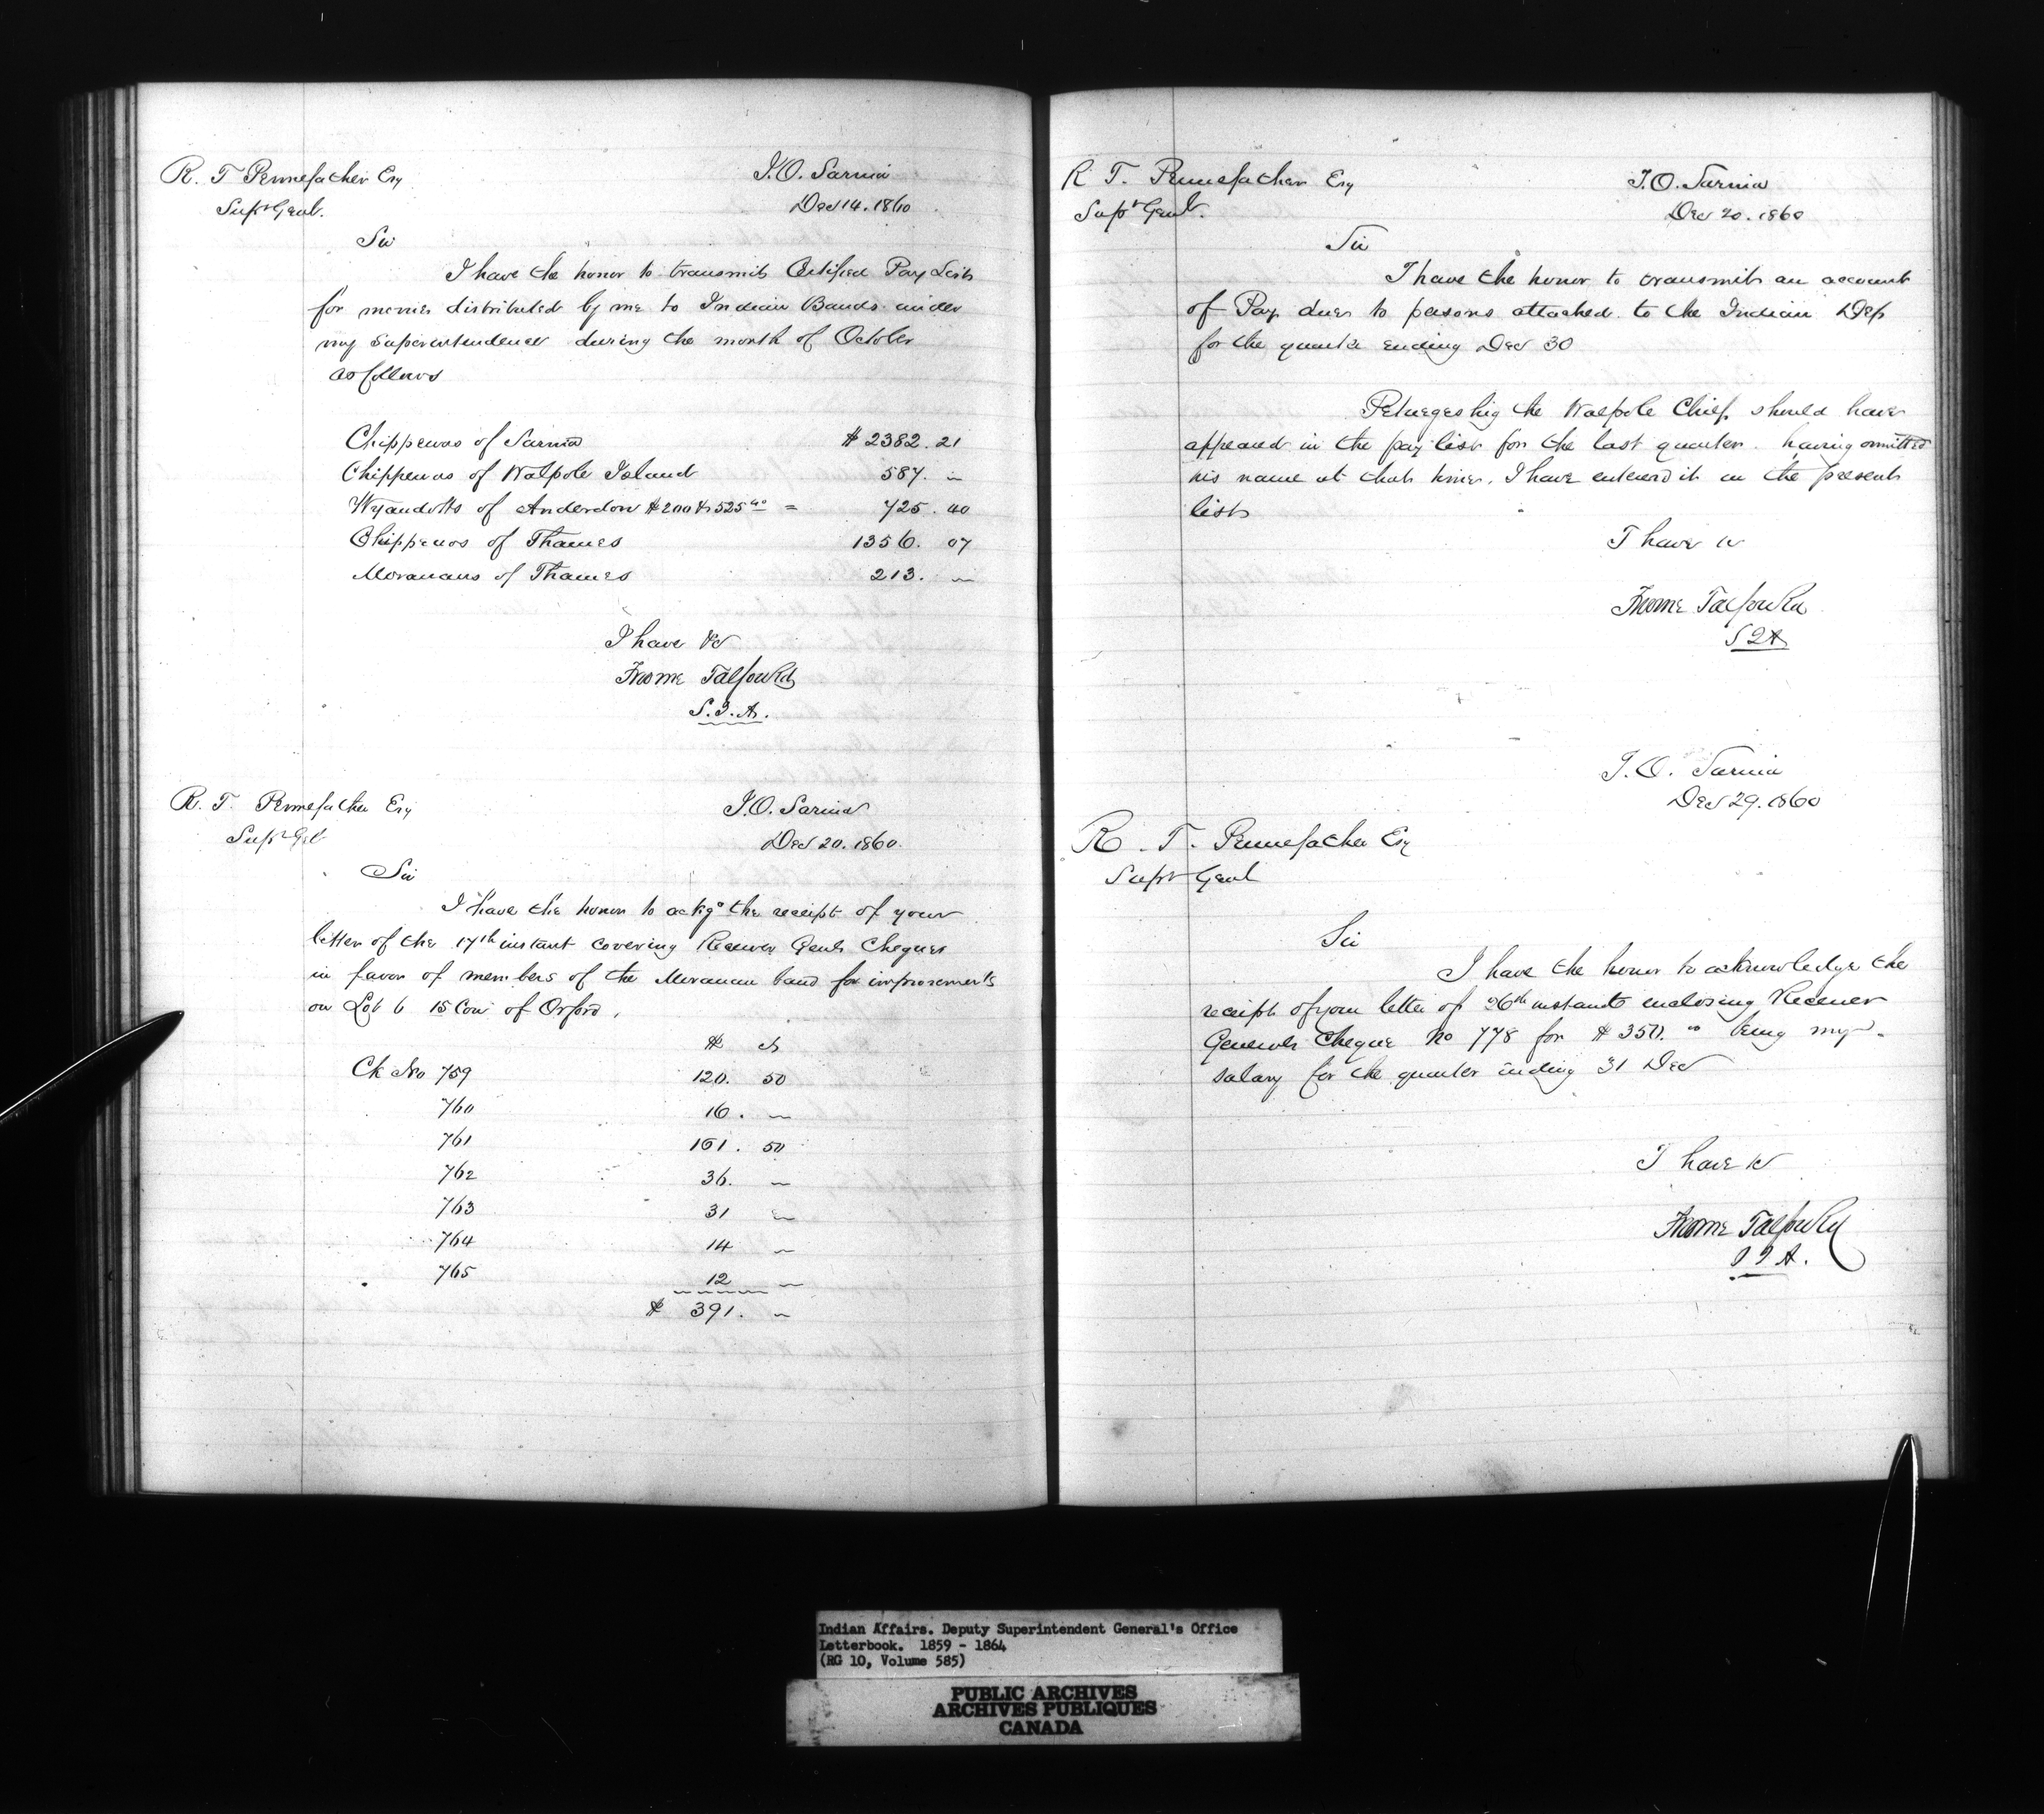 R. T Pennefather Esq
Supt Genl.
I.O. Sarnia
Dec 14. 1860
Sir
I have the honor to transmit Certified Pay Lists
for monies distributed by me to Indian Bands under
my superintendence during the month of October
as follows
Chippewas of Sarnia $ 2382. 21
Chippewas of Walpole Island 587. "
Wyandotts of Anderdon $200 & 525 40 = 725. 40
Chippewas of Thames 1356. 07
Moravians of Thames 213. "
I have &c
Froome Talfourd
S.I.A.
R. T. Pennefather Esq
Supt Gel
I.O. Sarnia
Dec 20. 1860.
Sir
I have the honor to ackg the receipt of your
letter of the 17th instant covering Receiver Genls Cheques
in favor of members of the Moravian band for improvements
on Lot 6 15 Con of Orford.
$ cts
Ck No 759 120. 50
760 16. "
761 161. 50
762 36. "
763 31 "
764 14 "
765 12 "
$ 391. "
R T. Pennefather Esq
Supt Genl.
I.O. Sarnia
Dec 20. 1860
Sir
I have the honor to transmit an account
of Pay due to persons attached to the Indian Dep
for the quarter ending Dec 30
Petwegeshig the Walpole Chief should have
appeared in the pay list for the last quarter. having ommitted
his name at that time, I have entered it in the present
list
I have &c
Froome Talfourd
S I A
I.O. Sarnia
Dec 29. 1860
R. T. Pennefather Esq
Supt Genl
Sir
I have the honor to acknowledge the
receipt of your letter of 26th instant enclosing Receiver
Generals Cheque No 778 for $ 350. 00 being my
salary for the quarter ending 31 Dec
I have &c
Froome Talfourd
S I A.
Indian Affairs. Deputy Superintendent General's Office
Letterbook. 1859 - 1864
(RG 10, Volume 585)
PUBLIC ARCHIVES
ARCHIVES PUBLIQUES
CANADA